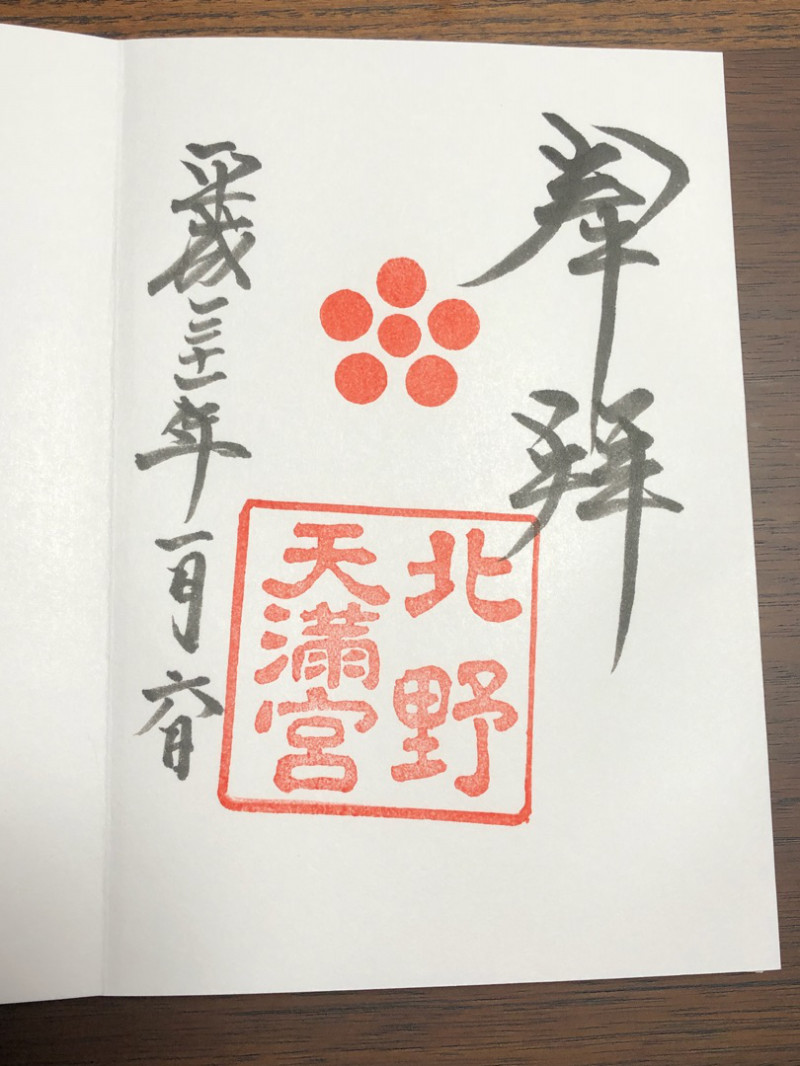 奉拝
北野
天満宮
平成三十一年一月六日